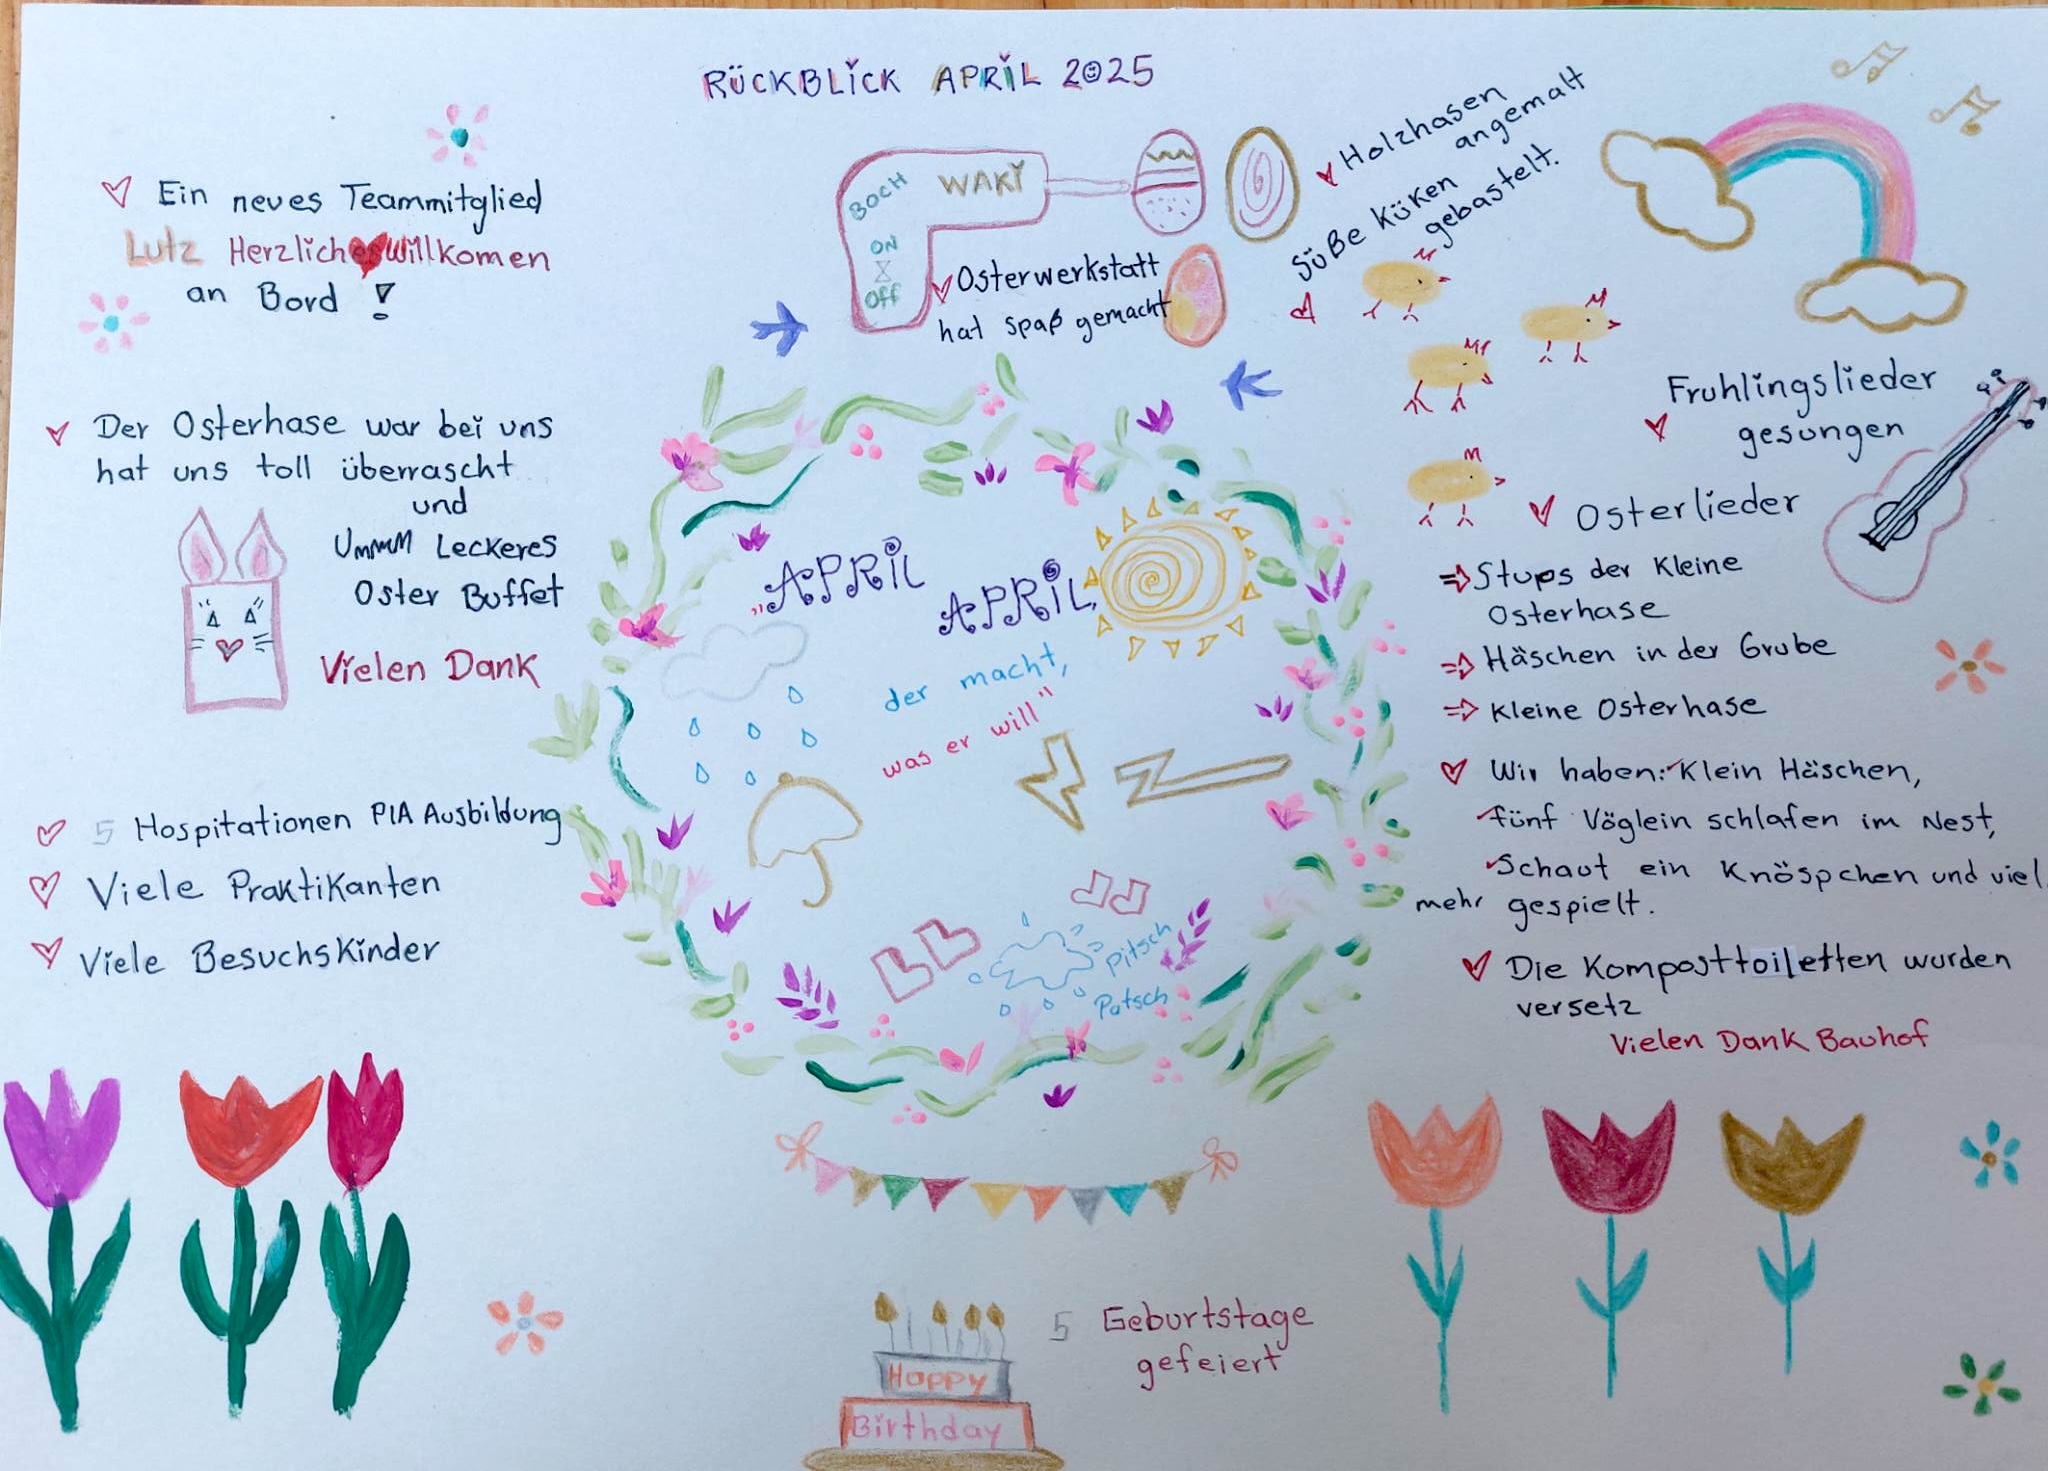 RÜCKBLICK APRIL 2025
Ein neues Teammitglied
Lutz Herzliches Willkomen
an Bord !
Der Osterhase war bei uns
hat uns toll überrascht
und
Ummm Leckeres
Oster Buffet
Vielen Dank
5 Hospitationen PIA Ausbildung
Viele Praktikanten
Viele Besuchskinder
BOCH WAKI
ON
Off
Osterwerkstatt
hat spaß gemacht
Holzhasen
angemalt
süße Küken
gebastelt.
Fruhlingslieder
gesungen
Osterlieder
⇒ Stups der Kleine
Osterhase
⇒ Häschen in der Grube
⇒ Kleine Osterhase
Wir haben: Klein Häschen,
fünf Vöglein schlafen im Nest,
Schaut ein Knöspchen und viel
mehr gespielt.
Die Komposttoiletten wurden
versetz
Vielen Dank Bauhof
„APRIL
APRIL,
der macht,
was er will"
Pitsch
Patsch
5 Geburtstage
gefeiert
Happy
Birthday